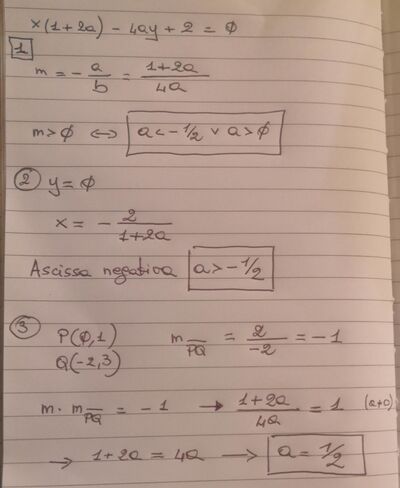 x(1+2a) - 4ay + 2 = ∅
1
m = - a/b = (1+2a)/4a
m > ∅ ⟺ a < -1/2 ∨ a > ∅
2 y = ∅
x = - 2/(1+2a)
Ascissa negativa a > -1/2
3 P(∅,1) m_PQ = 2/-2 = -1
Q(-2,3)
m · m_PQ = -1 → (1+2a)/4a = 1 (a≠0)
→ 1+2a = 4a → a = 1/2